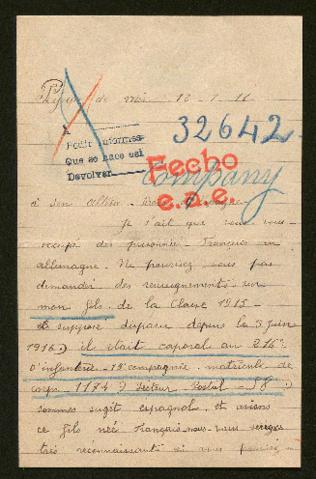 Lyon de 12-1-16
32642
Pedir informes
Que se hace así
Devolver
Fecho
e.a.e.
Company
à son Altesse
Je sait que vous vous
occup des prisonnie Français en
allemagne. Ne pouriez vous pas
demander des renseignements sur
mon fils de la Classe 1915
suppose disparu depuis le 5 Juin
1916) il etait caporal au 216e
D'infanterie - 19e compagnie - matricule de
corps 1174) Secteur Postal - 98)
sommes sugit espagnols et avions
ce fils né Français nous vous serions
très reconnaissant si vous pouviez